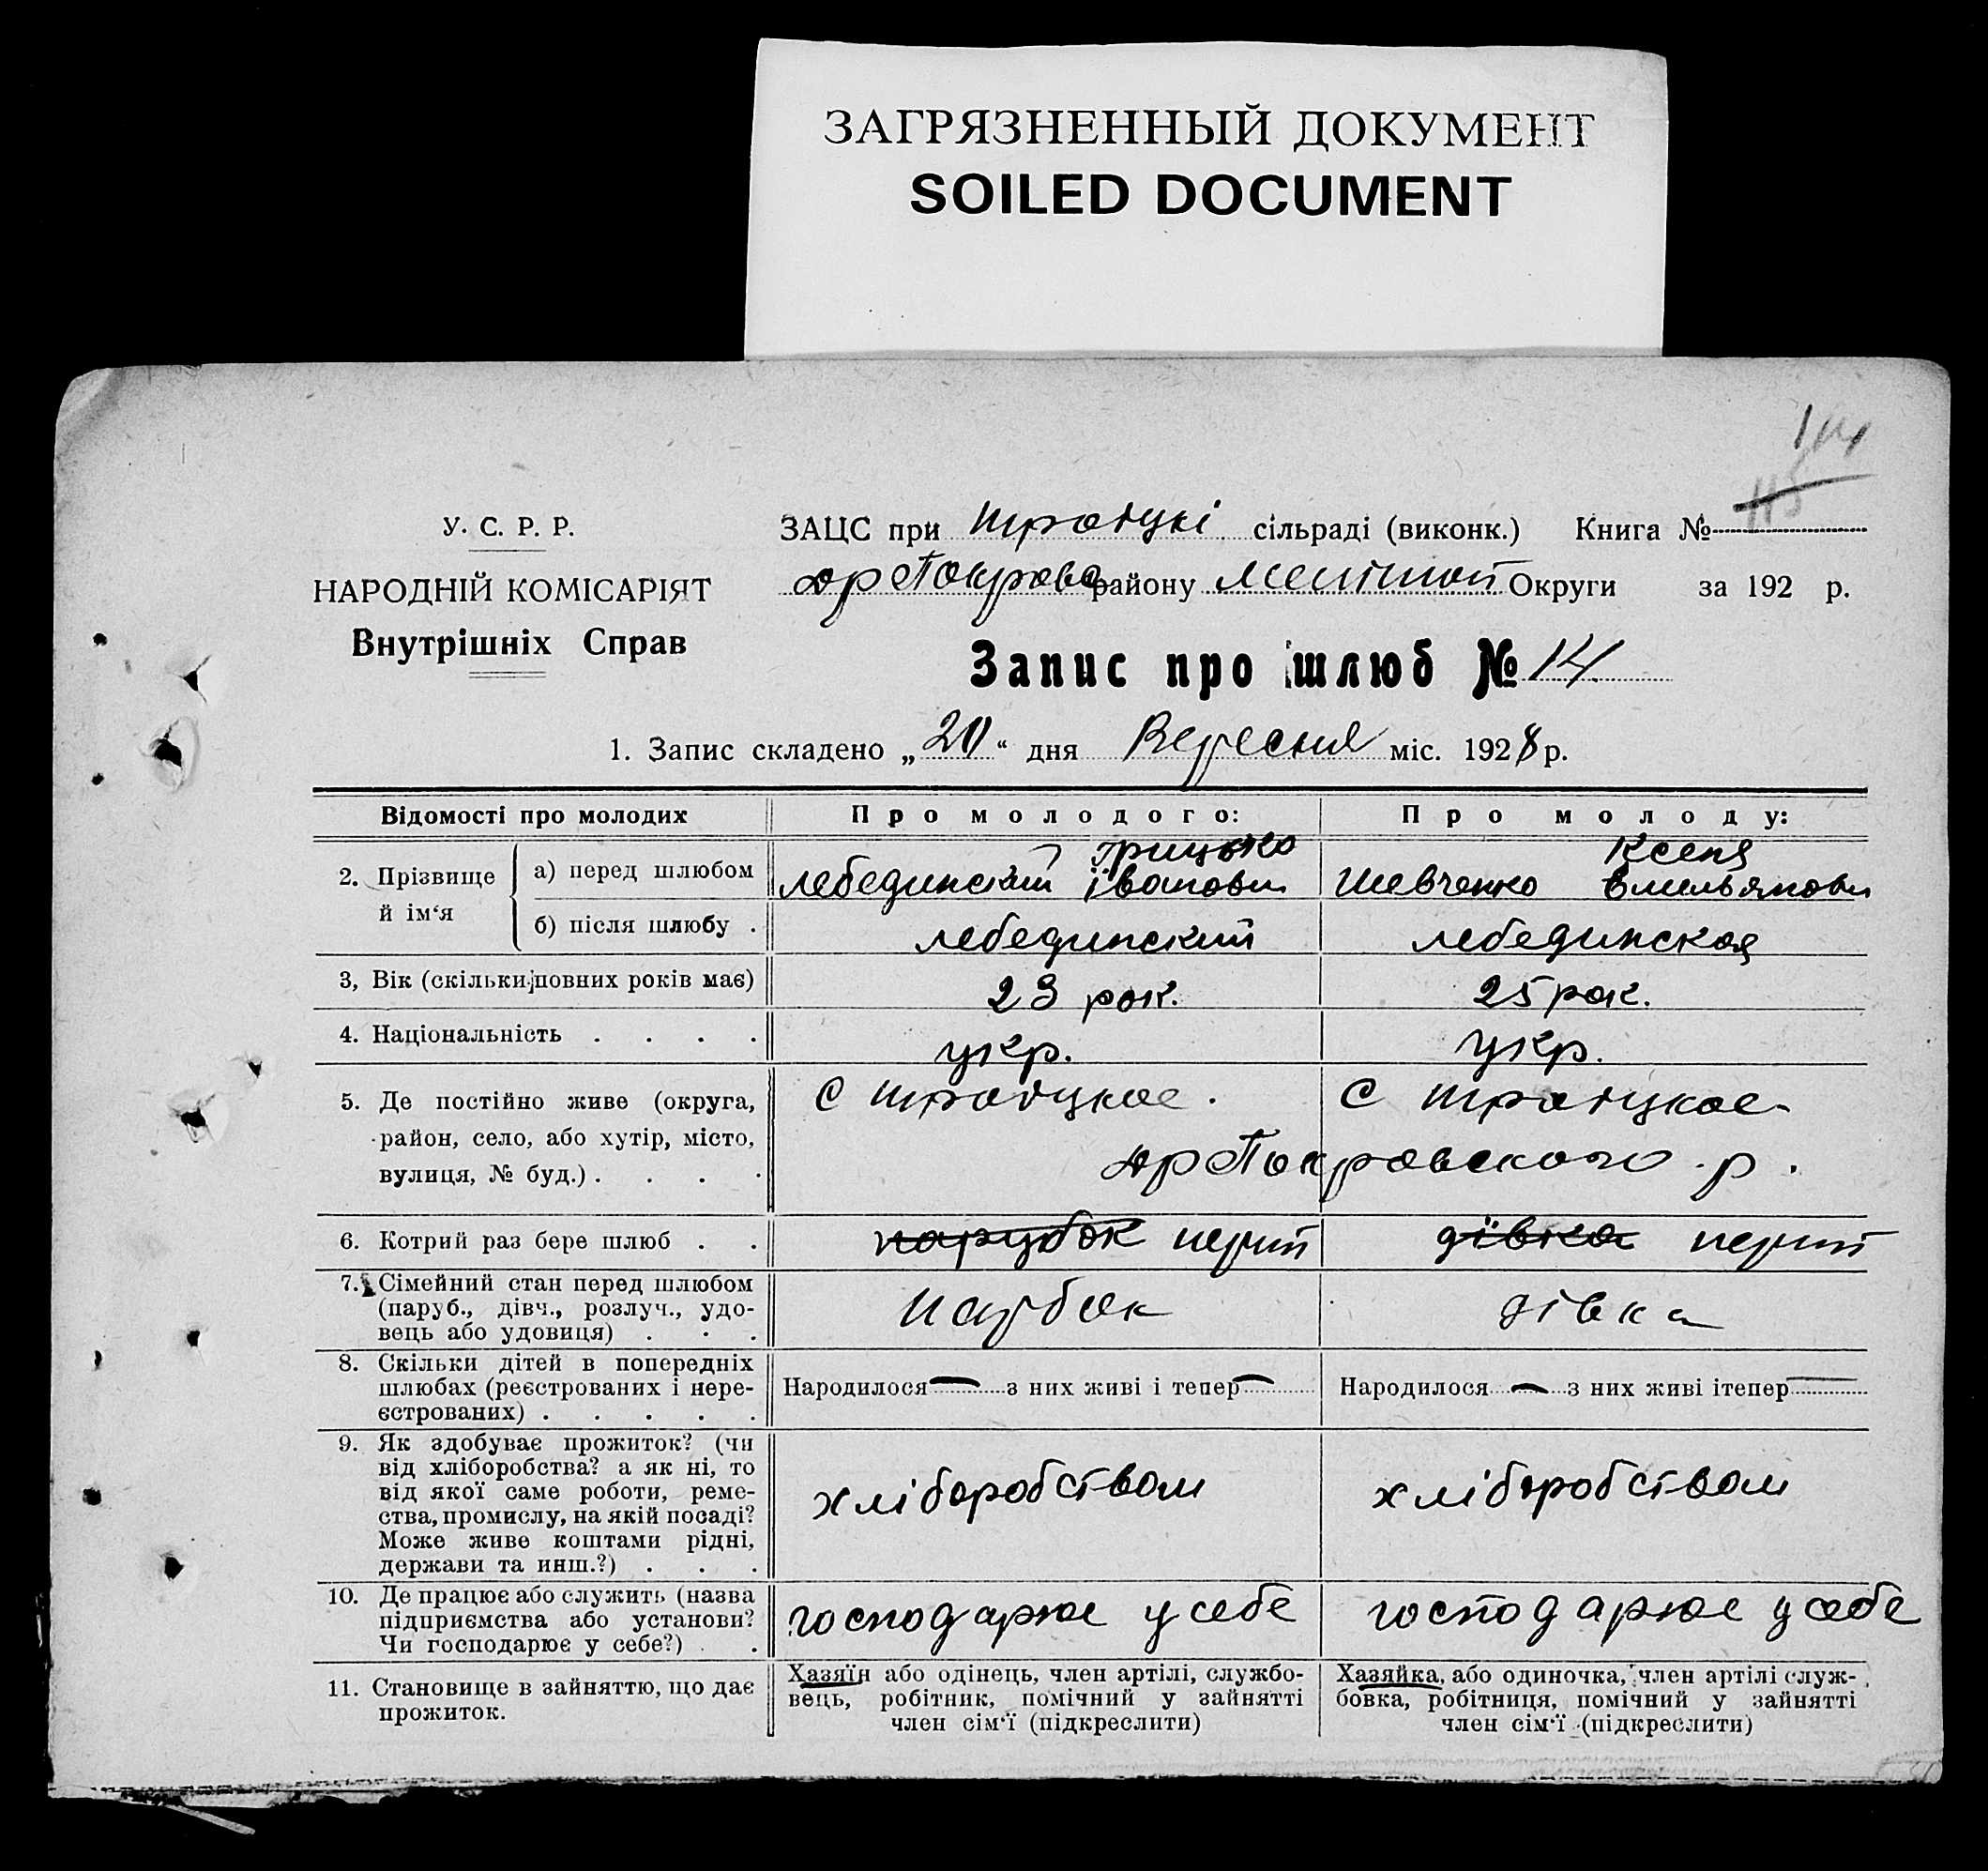 ЗАГРЯЗНЕННЫЙ ДОКУМЕНТ
SOILED DOCUMENT
114
115
У. С. Р. Р.
НАРОДНІЙ КОМІСАРІЯТ
Внутрішніх Справ
ЗАЦС при Троіцкі сільраді (виконк.) Книга №
району Округи за 192 р.
Запис про шлюб № 14
1. Запис складено „20“ дня Вересня міс. 1928 р.
Відомості про молодих Про молодого: Про молоду:
2. Прізвище й ім‘я
а) перед шлюбом
Грицько
Лебединский Іванович
Ксеня
Шевченко Емильянович
б) після шлюбу . Лебединский Лебединская
3, Вік (скільки повних років має) 23 рок. 25 рок.
4. Національність . . . . укр. укр.
5. Де постійно живе (округа,
район, село, або хутір, місто,
вулиця, № буд.) . . . .
с Троіцкое. с Троіцкое
Покровского р.
6. Котрий раз бере шлюб . . парубок перший дівка перший
7. Сімейний стан перед шлюбом
(паруб., дівч., розлуч., удо-
вець або удовиця) . . .
парубок дівка
8. Скільки дітей в попередніх
шлюбах (реєстрованих і нере-
єстрованих) . . . . .
Народилося — з них живі і тепер — Народилося — з них живі ітепер —
9. Як здобуває прожиток? (чи
від хліборобства? а як ні, то
від якої саме роботи, реме-
ства, промислу, на якій посаді?
Може живе коштами рідні,
держави та инш.?) . . .
хліборобством хліборобством
10. Де працює або служить (назва
підприємства або установи?
Чи господарює у себе?) . .
господарює у себе господарює у себе
11. Становище в зайняттю, що дає
прожиток.
Хазяїн або одінець, член артілі, службо-
вець, робітник, помічний у зайнятті
член сім‘ї (підкреслити)
Хазяйка, або одиночка, член артілі служ-
бовка, робітниця, помічний у зайнятті
член сім‘ї (підкреслити)